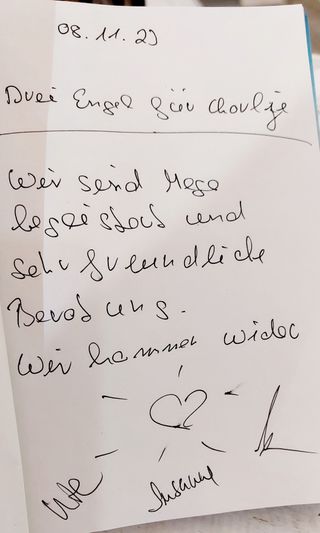 08.11.25
Drei Engel für Charlije
Wir send Mega
begeistat und
sehr freundliche
Beratung.
Wir kommen wider
Ute
Susanne